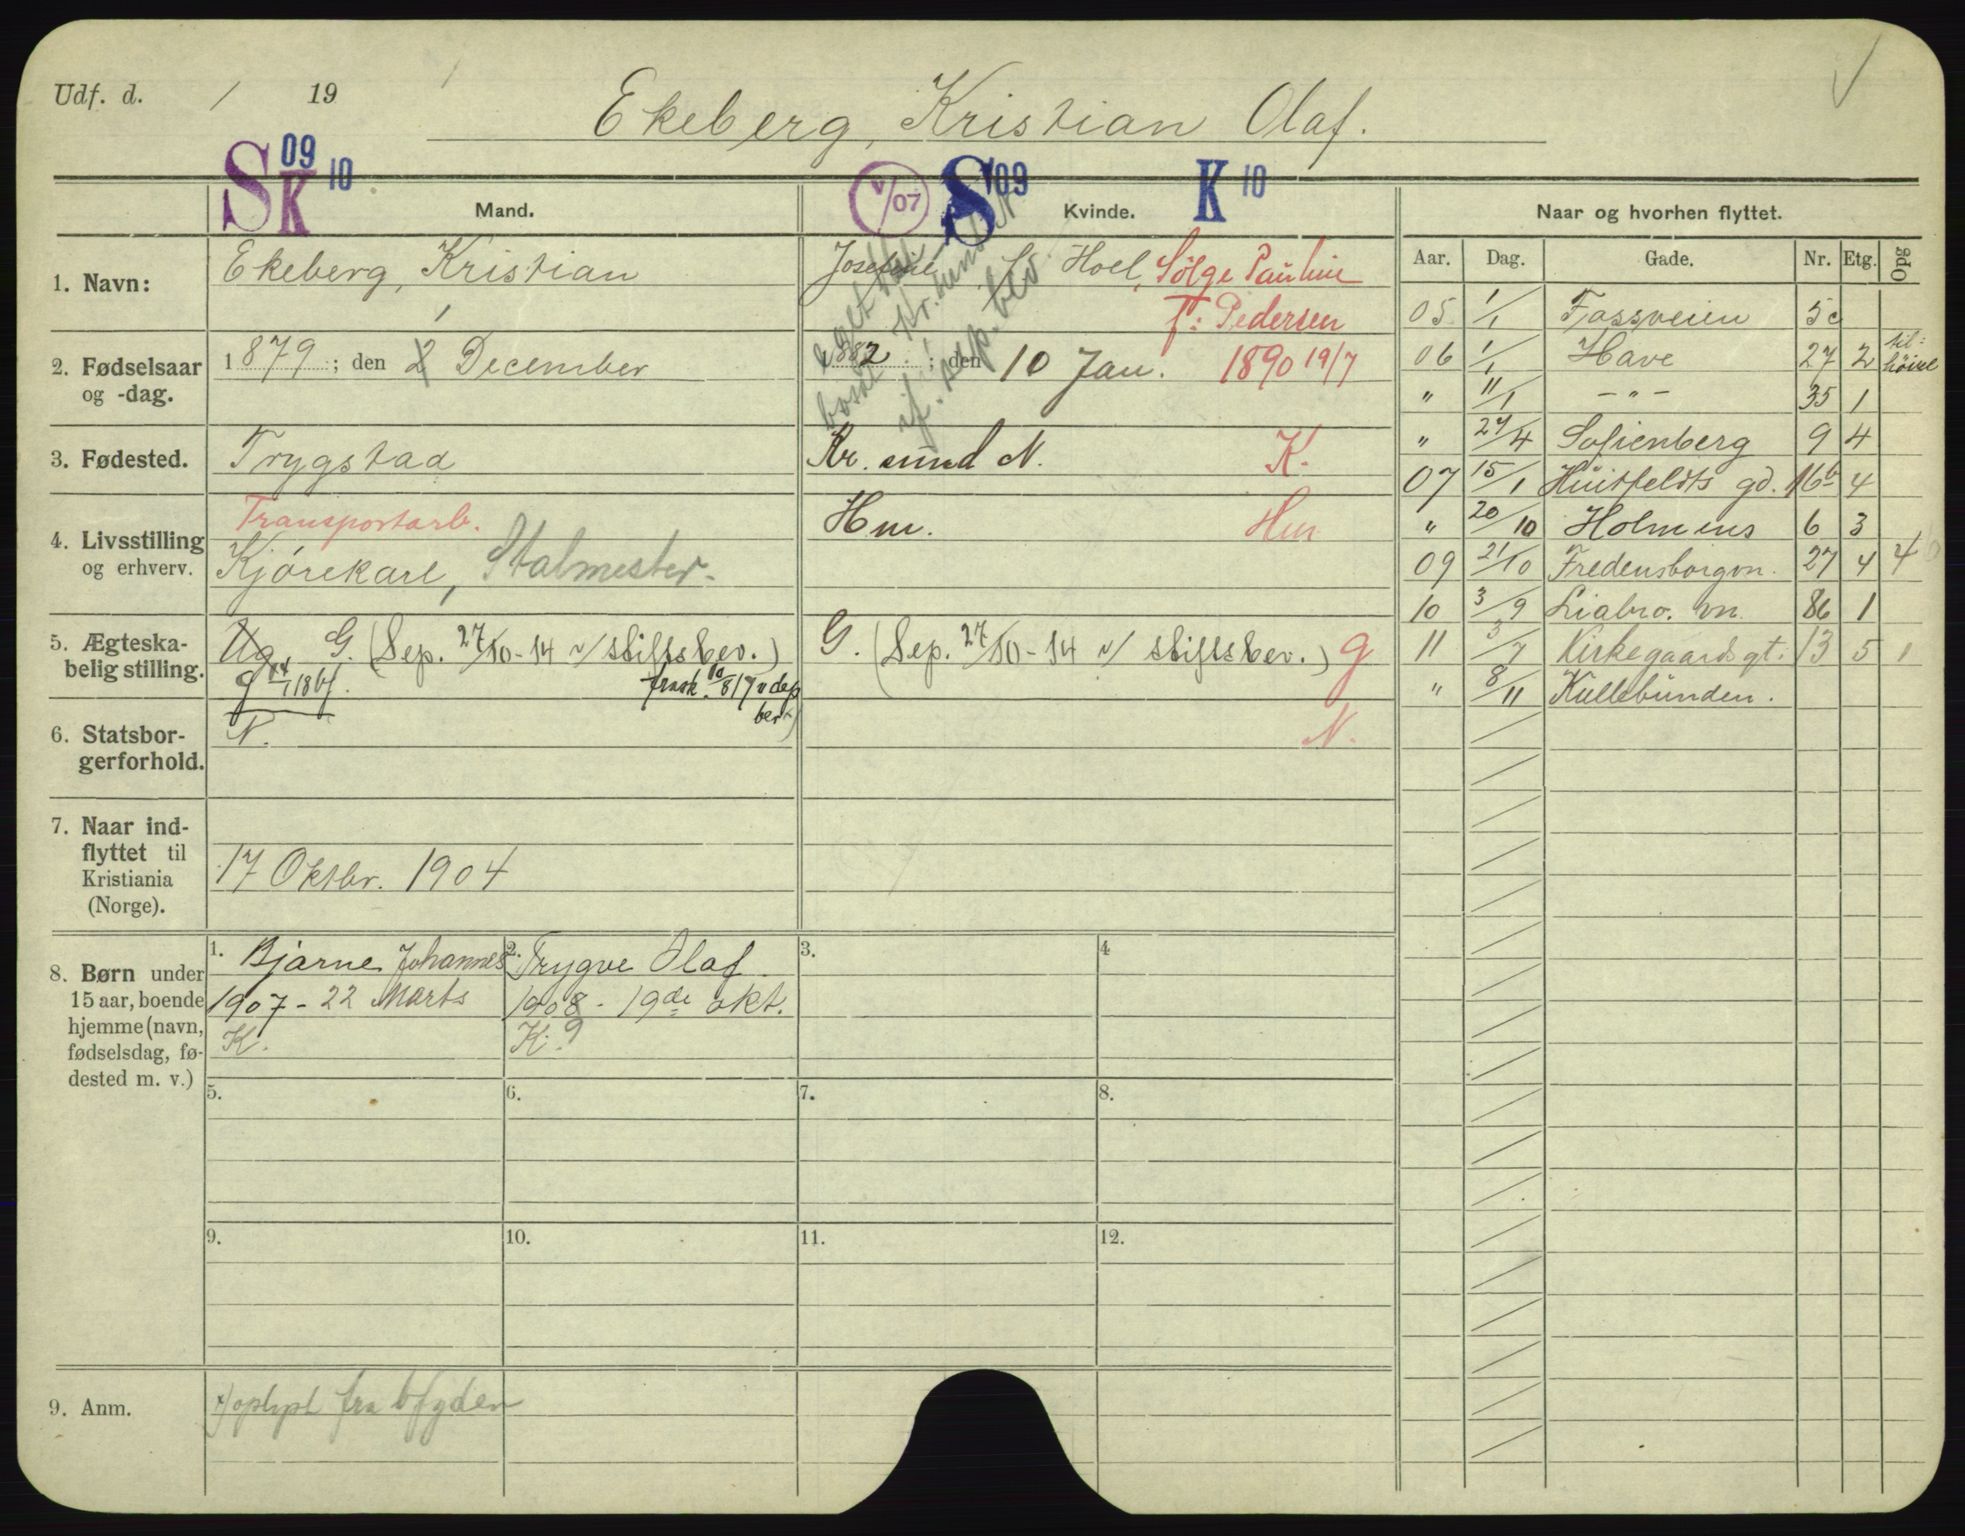 Udf. d. / 19
Ekeberg, Kristian Olaf.
S 09 K 10
V/07 S 09 K 10
Mand. Kvinde. Naar og hvorhen flyttet.
Aar. Dag. Gade. Nr. Etg. Opg
1. Navn: Ekeberg, Kristian
Josefine Hoel, Sølge Pauline
f: Pedersen
2. Fødselsaar og -dag. 1879; den 2 December
1882; den 10 Jan. 1890 19/7
3. Fødested. Trygstad
Kr. sund N. K.
4. Livsstilling og erhverv. Transportarb.
Kjørekarl, Stalmester.
Hm. Hm
5. Ægteskabelig stilling. Ug. G. (Sep. 27/10-14 v/ stiftsbev.)
g 14/1 18 bf. frask. 10/8 17 v dep
G. (Sep. 27/10-14 v/ stiftsbev.) g
6. Statsborgerforhold. N.
N.
7. Naar indflyttet til Kristiania (Norge). 17 Oktbr. 1904
8. Børn under 15 aar, boende hjemme (navn, fødselsdag, fødested m. v.)
1. Bjarne Johannes
1907 - 22 Marts
K.
2. Trygve Olaf
1908 - 19de okt.
K. 9
3.
4
5.
6.
7.
8.
9.
10.
11.
12.
9. Anm. x) oplyst fra
05 1/1 Fossveien 5c
06 1/1 Have 27 2 til høire
" 11/1 - " - 35 1
" 24/4 Sofienberg 9 4
07 15/1 Huitfeldts gd. 16b 4
" 20/10 Holmens 6 3
09 21/10 Fredensborgvn. 27 4 4
10 3/9 Liabro. vn. 86 1
11 3/7 Kirkegaards gt. 13 5 1
" 8/11 Kullebunden.